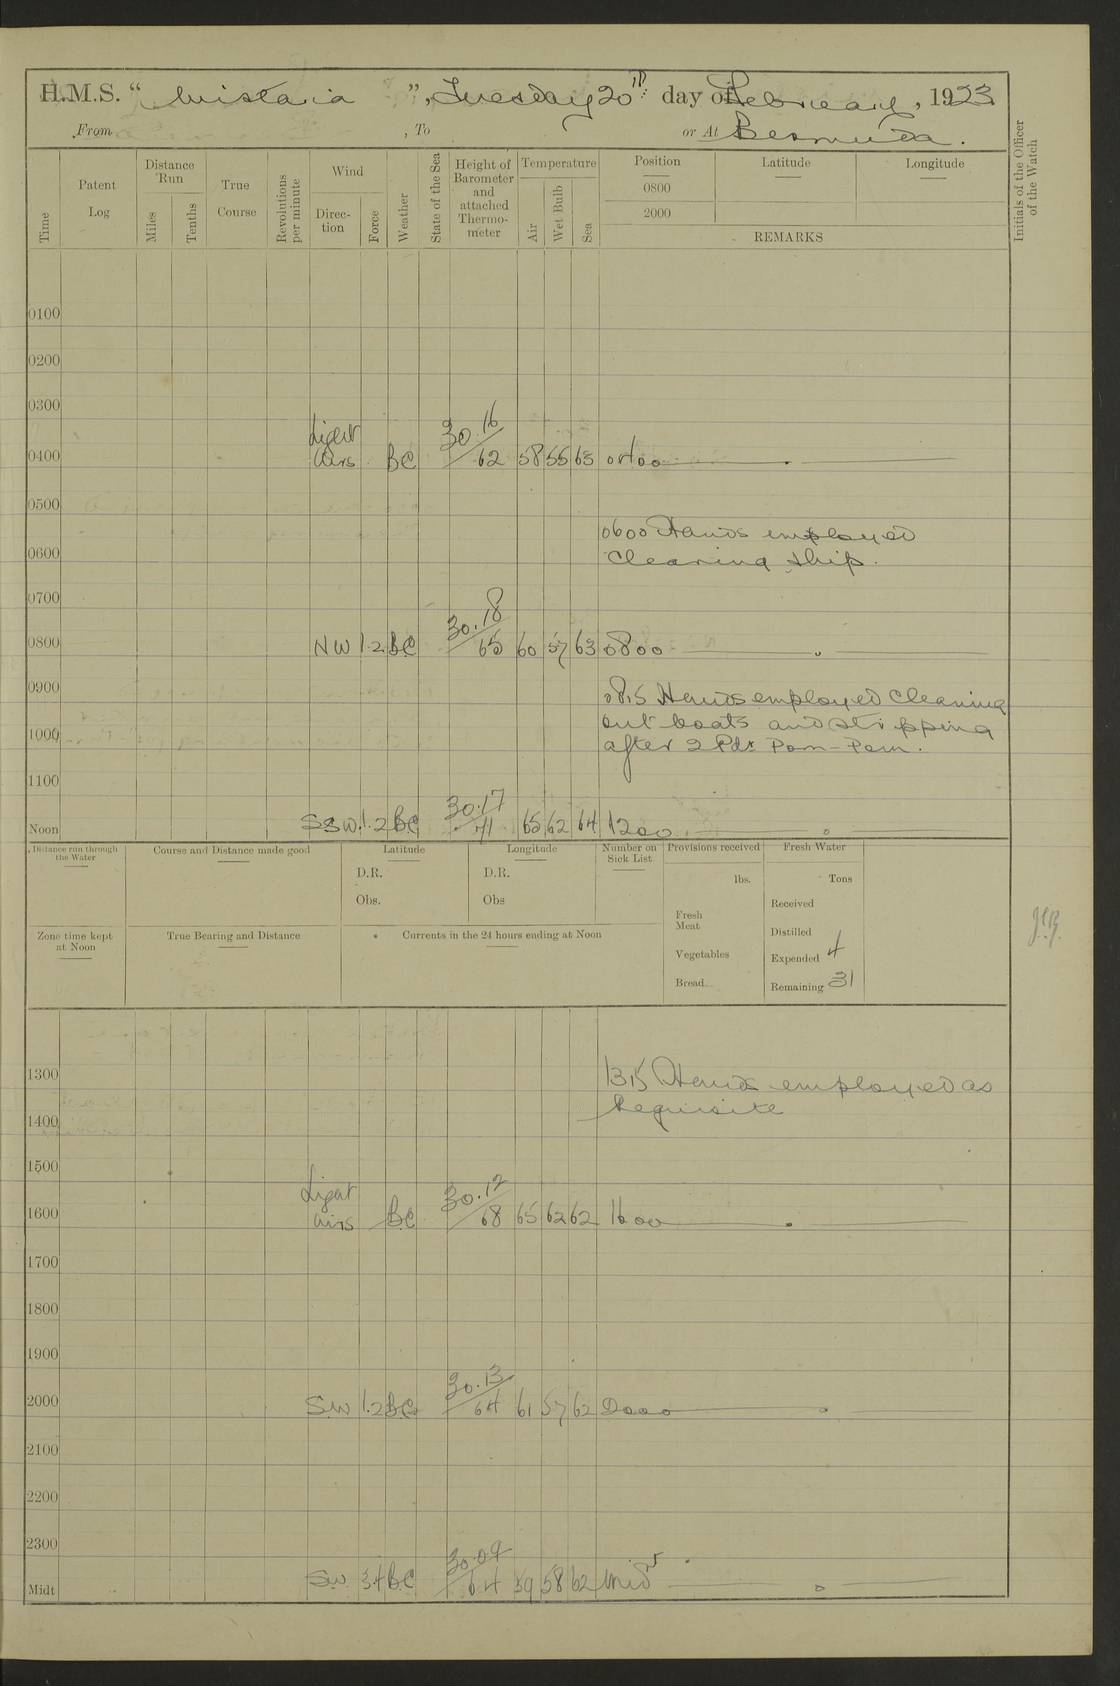 H.M.S. "Wistaria", Tuesday 20th: day of February, 1923
From , To or At Bermuda.
Time
Patent Log
Distance Run
Miles
Tenths
True Course
Revolutions per minute
Wind
Direction
Force
Weather
State of the Sea
Height of Barometer and attached Thermometer
Temperature
Air
Wet Bulb
Sea
Position
0800
2000
Latitude
Longitude
REMARKS
Initials of the Officer of the Watch
0100
0200
0300
Light 30.16
0400 airs BC 62 58 55 63 0400
0500
0600 Hands employed
0600 Cleaning ship.
0700
30.18
0800 NW 1.2 BC 65 60 57 63 0800
0900 0815 Hands employed Cleaning
out boats and stripping
1000 after 2 Pdr Pom-Pom.
1100
30.17
Noon SSW. 1.2 BC 71 65 62 64 1200
Distance run through the Water
Course and Distance made good
Latitude
D.R.
Obs.
Longitude
D.R.
Obs
Number on Sick List
Provisions received
lbs.
Fresh Meat
Vegetables
Bread
Fresh Water
Tons
Received
Distilled
Expended 4
Remaining 31
Zone time kept at Noon
True Bearing and Distance
Currents in the 24 hours ending at Noon
1300 1315 Hands employed as
1400 Requisite
1500
Light 30.12
1600 airs BC 68 65 62 62 1600
1700
1800
1900
30.13
2000 SW 1.2 BC 64 61 57 62 2000
2100
2200
2300
30.09
Midt SW 3.4 BC 64 59 58 62 Midt